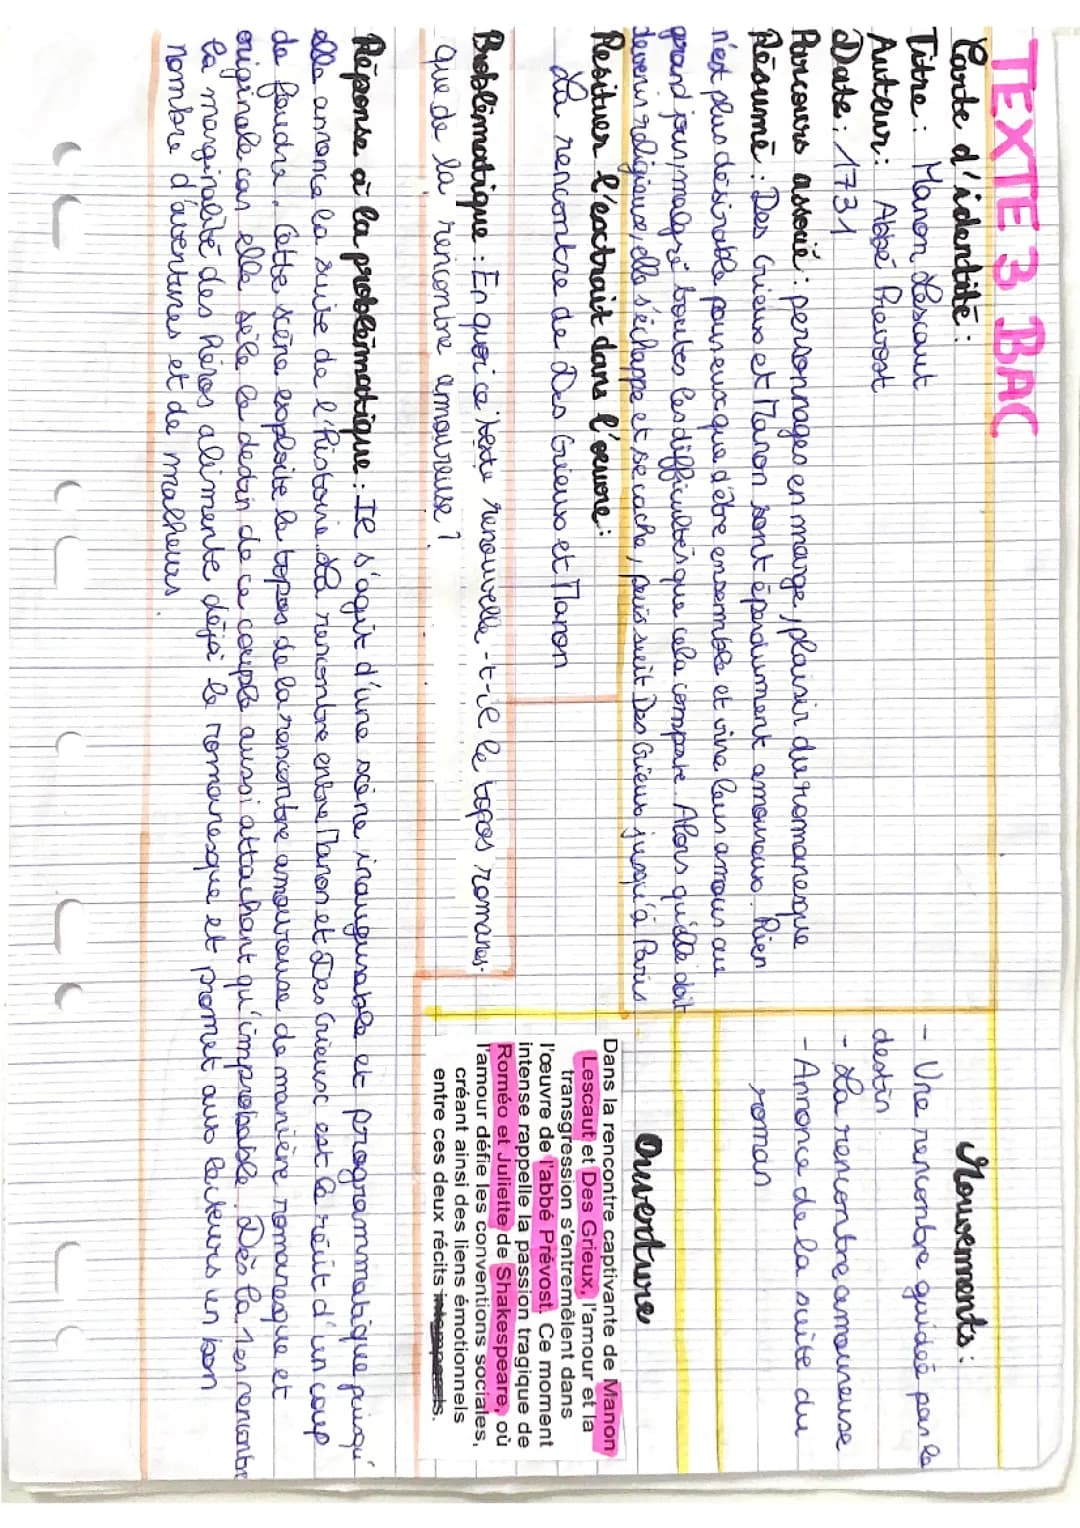 TEXTE 3 BAC
Carte d'identité :
Titre : Manon Lescaut
Auteur : Abbé Prevost
Date : 1731
Parcours associé : personnages en marge, plaisir du romanesque
Résumé : Des Grieux et Manon sont éperdument amoureux. Rien
n'est plus désirable pour eux que d'être ensemble et vivre leur amour au
grand jour, malgré toutes les difficultés que cela comporte. Alors qu'elle doit
devenir religieuse, elle s'échappe et se cache, puis suit Des Grieux jusqu'à Paris
Resituer l'extrait dans l'œuvre :
La rencontre de Des Grieux et Manon
Mouvements :
- Une rencontre guidée par le
destin
- La rencontre amoureuse
- Annonce de la suite du
roman
Ouverture
Dans la rencontre captivante de Manon
Lescaut et Des Grieux, l'amour et la
transgression s'entremêlent dans
l'œuvre de l'abbé Prévost. Ce moment
intense rappelle la passion tragique de
Roméo et Juliette de Shakespeare, où
l'amour défie les conventions sociales,
créant ainsi des liens émotionnels
entre ces deux récits
Problématique : En quoi ce texte renouvelle-t-il le topos romanes-
que de la rencontre amoureuse ?
Réponse à la problématique : Il s'agit d'une scène inaugurable et programmatique puisqu'
elle annonce la suite de l'histoire. La rencontre entre Manon et Des Grieux est le récit d'un coup
de foudre. Cette scène exploite le topos de la rencontre amoureuse de manière romanesque et
originale car elle scèle le destin de ce couple aussi attachant qu'improbable. Dès la 1er rencontre
la marginalité des héros alimente déjà le romanesque et promet aux lecteurs un bon
nombre d'aventures et de malheurs.